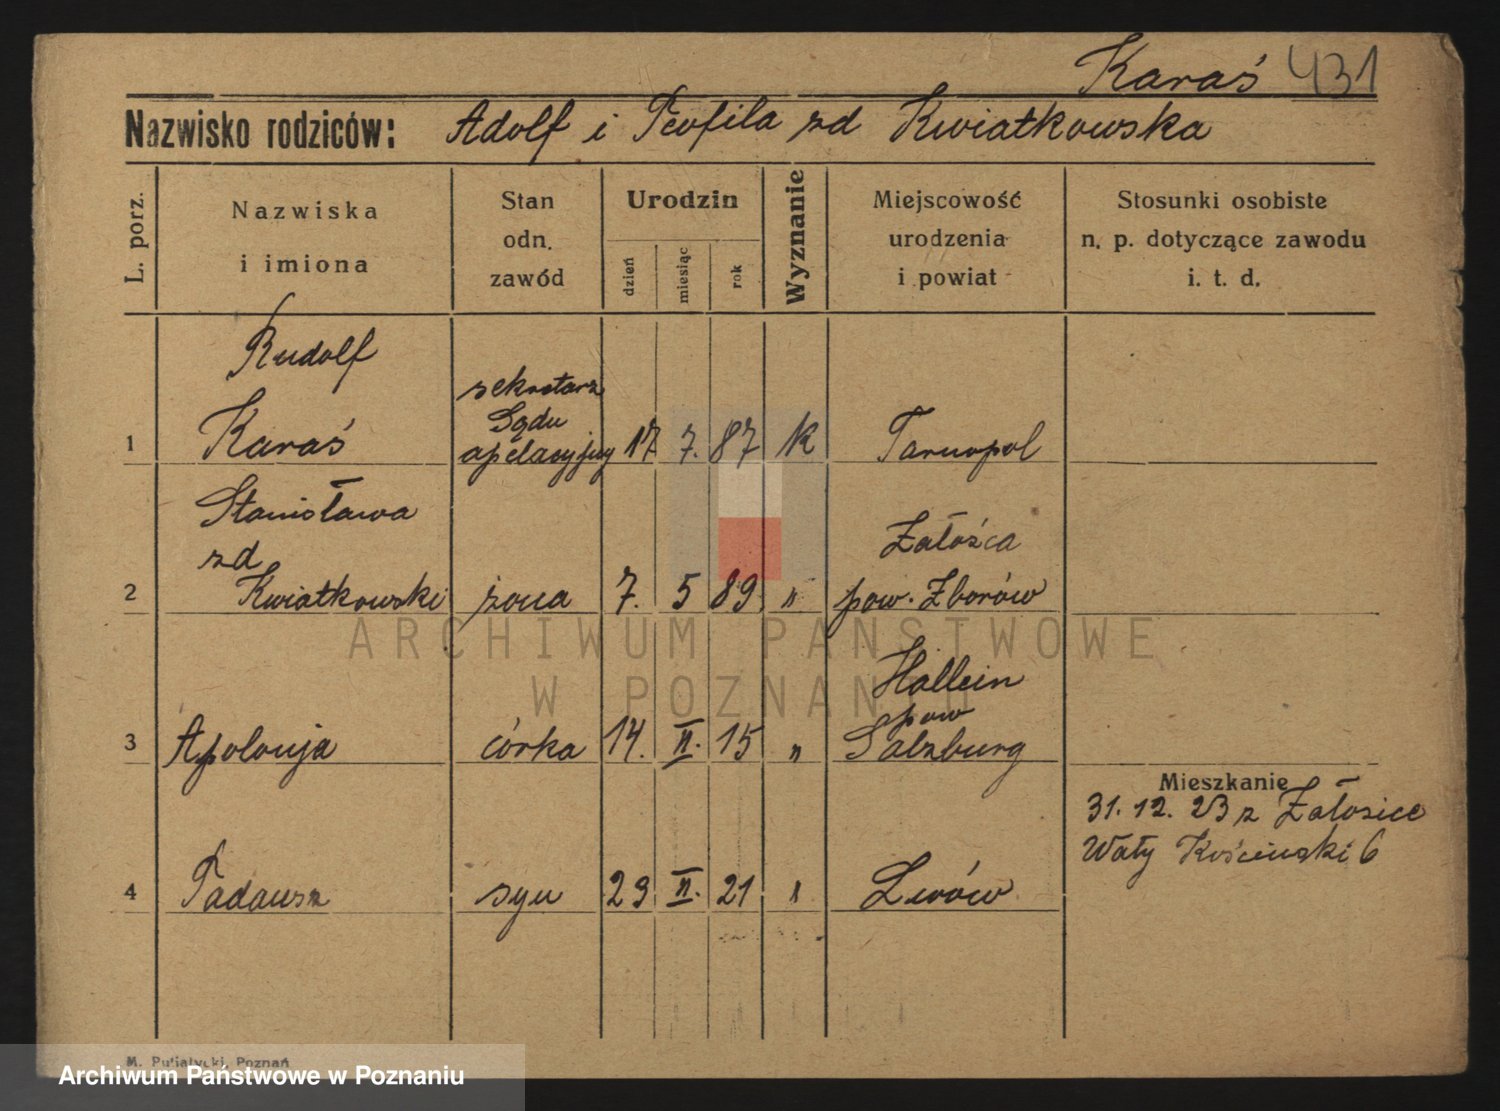 Karaś 431
Nazwisko rodziców: Adolf i Teofila zd Kwiatkowska
L. porz.
Nazwiska
i imiona
Stan
odn.
zawód
Urodzin
dzień
miesiąc
rok
Wyznanie
Miejscowość
urodzenia
i powiat
Stosunki osobiste
n. p. dotyczące zawodu
i. t. d.
Rudolf
sekretarz
Sądu
1 Karaś apelacyjny 17 7. 87 k Tarnopol
Stanisława
zd Załośca
2 Kwiatkowski żona 7. 5 89 " pow. Zborów
ARCHIWUM PAŃSTWOWE
W POZNANIU
Hallein
pow
3 Apolonja córka 14. II. 15 " Salzburg
Mieszkanie
31. 12. 23 z Załosice
Wały Kościuski 6
4 Tadausz syn 23 II. 21 " Lwów
M. Putiatycki, Poznań
Archiwum Państwowe w Poznaniu